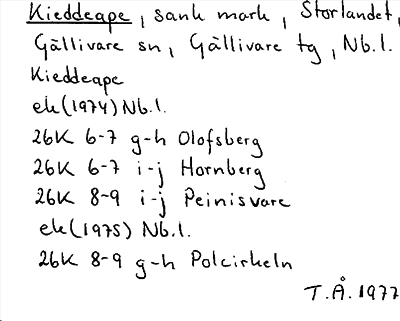 Kieddeape, sank mark, Storlandet,
Gällivare sn, Gällivare tg, Nb.l.
Kieddeape
ek(1974) Nb.l.
26K 6-7 g-h Olofsberg
26K 6-7 i-j Hornberg
26K 8-9 i-j Peinisvare
ek(1975) Nb.l.
26K 8-9 g-h Polcirkeln
T.Å. 1977